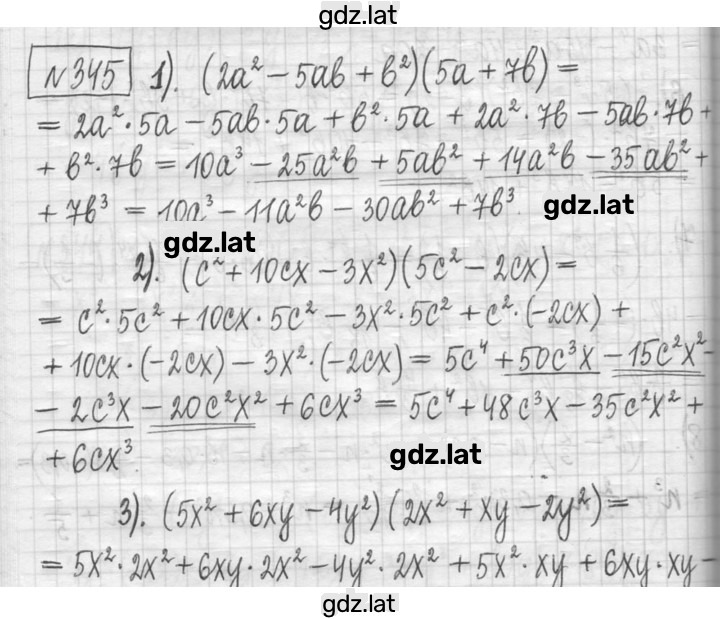 gdz.lat
№ 345 1). (2a² − 5ab + b²)(5a + 7b) =
= 2a²·5a − 5ab·5a + b²·5a + 2a²·7b − 5ab·7b +
+ b²·7b = 10a³ − 25a²b + 5ab² + 14a²b − 35ab² +
+ 7b³ = 10a³ − 11a²b − 30ab² + 7b³
gdz.lat
gdz.lat
2). (c² + 10cx − 3x²)(5c² − 2cx) =
= c²·5c² + 10cx·5c² − 3x²·5c² + c²·(−2cx) +
+ 10cx·(−2cx) − 3x²·(−2cx) = 5c⁴ + 50c³x − 15c²x² −
− 2c³x − 20c²x² + 6cx³ = 5c⁴ + 48c³x − 35c²x² +
+ 6cx³.
gdz.lat
3). (5x² + 6xy − 4y²)(2x² + xy − 2y²) =
= 5x²·2x² + 6xy·2x² − 4y²·2x² + 5x²·xy + 6xy·xy −
gdz.lat